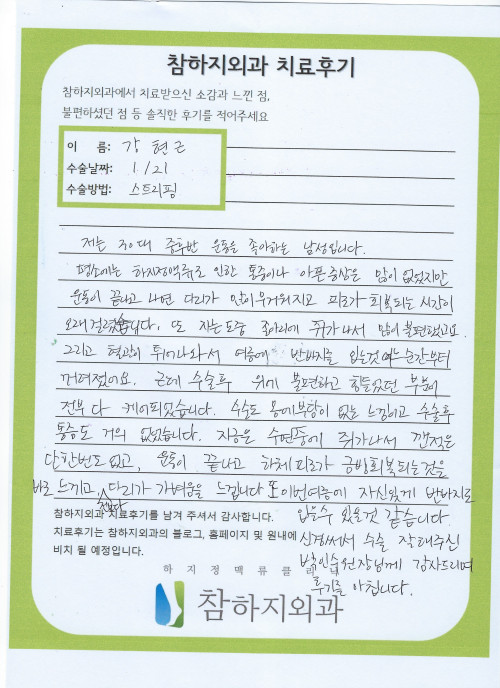 참하지외과 치료후기
참하지외과에서 치료받으신 소감과 느낀 점,
불편하셨던 점 등 솔직한 후기를 적어주세요
이 름: 강현근
수술날짜: 1/21
수술방법: 스트리핑
저는 30대 중후반 운동을 좋아하는 남성입니다.
평소에는 하지정맥류로 인한 통증이나 아픈증상은 많이 없었지만
운동이 끝나고 나면 다리가 많이 무거워지고 피로가 회복되는 시간이
오래 걸렸습니다. 또 자는도중 종아리에 쥐가나서 많이 불편했고요
그리고 혈관이 튀어나와서 여름에 반바지를 입는것 어느 순간부터
꺼려졌어요. 근데 수술후 위에 불편하고 힘들었던 부분
전부 다 케어되었습니다. 수술도 몸에 부담이 없는 느낌이고 수술후
통증도 거의 없었습니다. 지금은 수면중에 쥐가나서 깬적은
단한번도 없고, 운동이 끝나고 하체피로가 금방회복되는것을
바로 느끼고, 다리가 가벼움을 느낍니다 또 이번여름에 자신있게 반바지도
입을수 있을것 같습니다
참하지외과 치료후기를 남겨 주셔서 감사합니다.
치료후기는 참하지외과의 블로그, 홈페이지 및 원내에
비치 될 예정입니다.
신경써서 수술 잘해주신
박인수원장님께 감사드리며
후기를 마칩니다.
하지정맥류클리닉
참하지외과